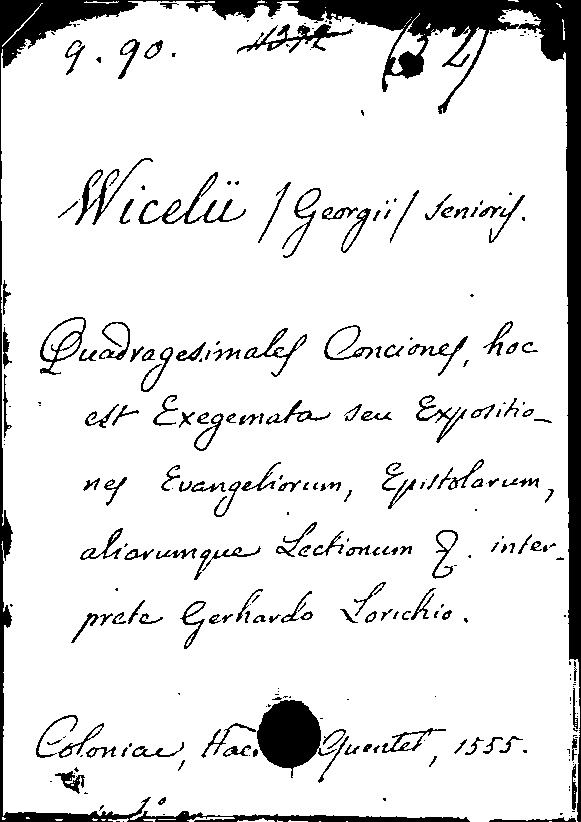 9.90. (32)
Wicelii /Georgii/ senioris.
Quadragesimales Conciones, hoc
est Exegemata seu Expositio-
nes Evangeliorum, Epistolarum,
aliarumque Lectionum &. inter-
prete Gerhardo Lorichio.
Coloniae, Quentel, 1555.
in